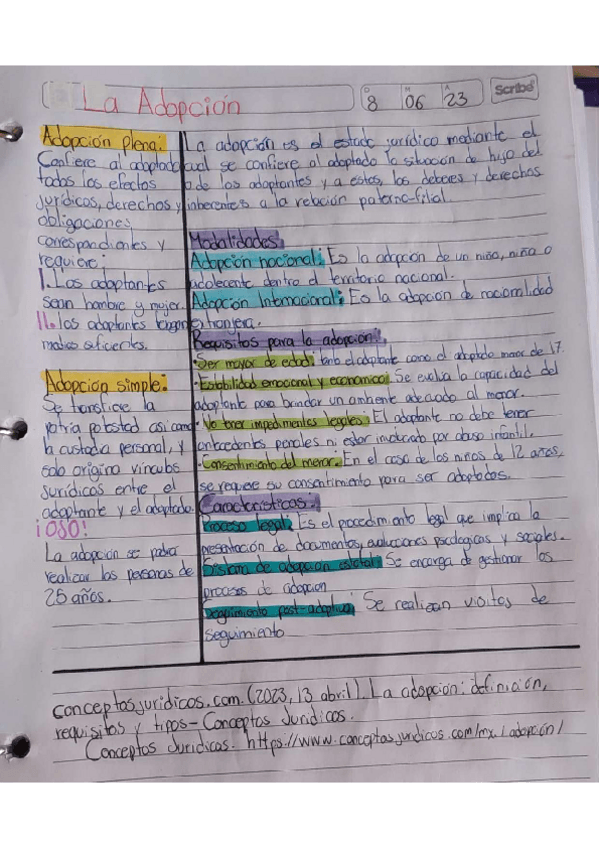 La Adopción
D M A
8 06 23
Scribe
Adopción plena:
Confiere al adoptado
todos los efectos
jurídicos, derechos y
obligaciones
correspondientes y
requiere:
I. Los adoptantes
sean hombre y mujer.
II. los adoptantes tengan
medios suficientes.
Adopción simple:
Se transfiere la
patria potestad así como
la custodia personal, y
solo origina vínculos
jurídicos entre el
adoptante y el adoptado.
¡OJO!
La adopción se podrá
realizar las personas de
25 años.
La adopción es el estado jurídico mediante el
cual se confiere al adoptado la situación de hijo del
o de los adoptantes y a estos, los deberes y derechos
inherentes a la relación paterno-filial.
Modalidades.
Adopción nacional: Es la adopción de un niño, niña o
adolecente dentro d territorio nacional.
Adopción Internacional: Es la adopción de nacionalidad
extranjera.
Requisitos para la adopción:
•Ser mayor de edad: tanto el adoptante como el adoptado menor de 17.
•Estabilidad emocional y economica: Se evalúa la capacidad del
adoptante para brindar un ambiente adecuado al menor.
•No tener impedimentos legales: El adoptante no debe tener
antecedentes penales ni estar involucrado por abuso infantil.
•Consentimiento del menor: En el caso de los niños de 12 años,
se requiere su consentimiento para ser adoptados.
Características:
Proceso legal: Es el procedimiento legal que implica la
presentación de documentos, evaluaciones psicologicas y sociales.
Sistema de adopción estatal: Se encarga de gestionar los
procesos de adopción
Seguimiento post-adoptivo: Se realizan visitas de
seguimiento
Conceptosjuridicos.com. (2023, 13 abril). La adopción: definición,
requisitos y tipos - Conceptos Jurídicos.
Conceptos Jurídicos. https://www.conceptosjuridicos.com/mx/adopción/